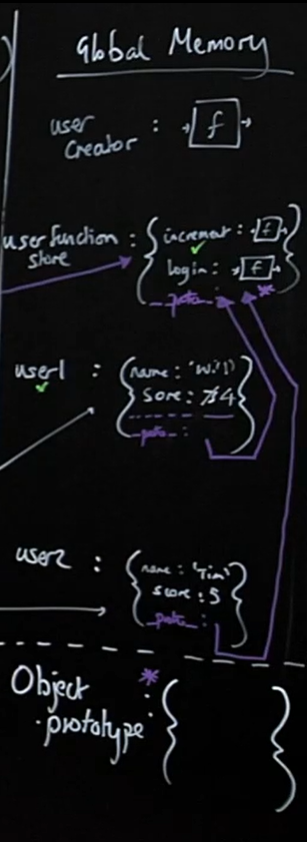 Global Memory
user : f
Creator
user function : { increment : f
store login : f }
__proto__ : *
user1 : { name : 'Will'
Sore : 3/4
__proto__ : }
user2 : { name : 'Tim'
score : 5
__proto__ : }
Object *
prototype : { }